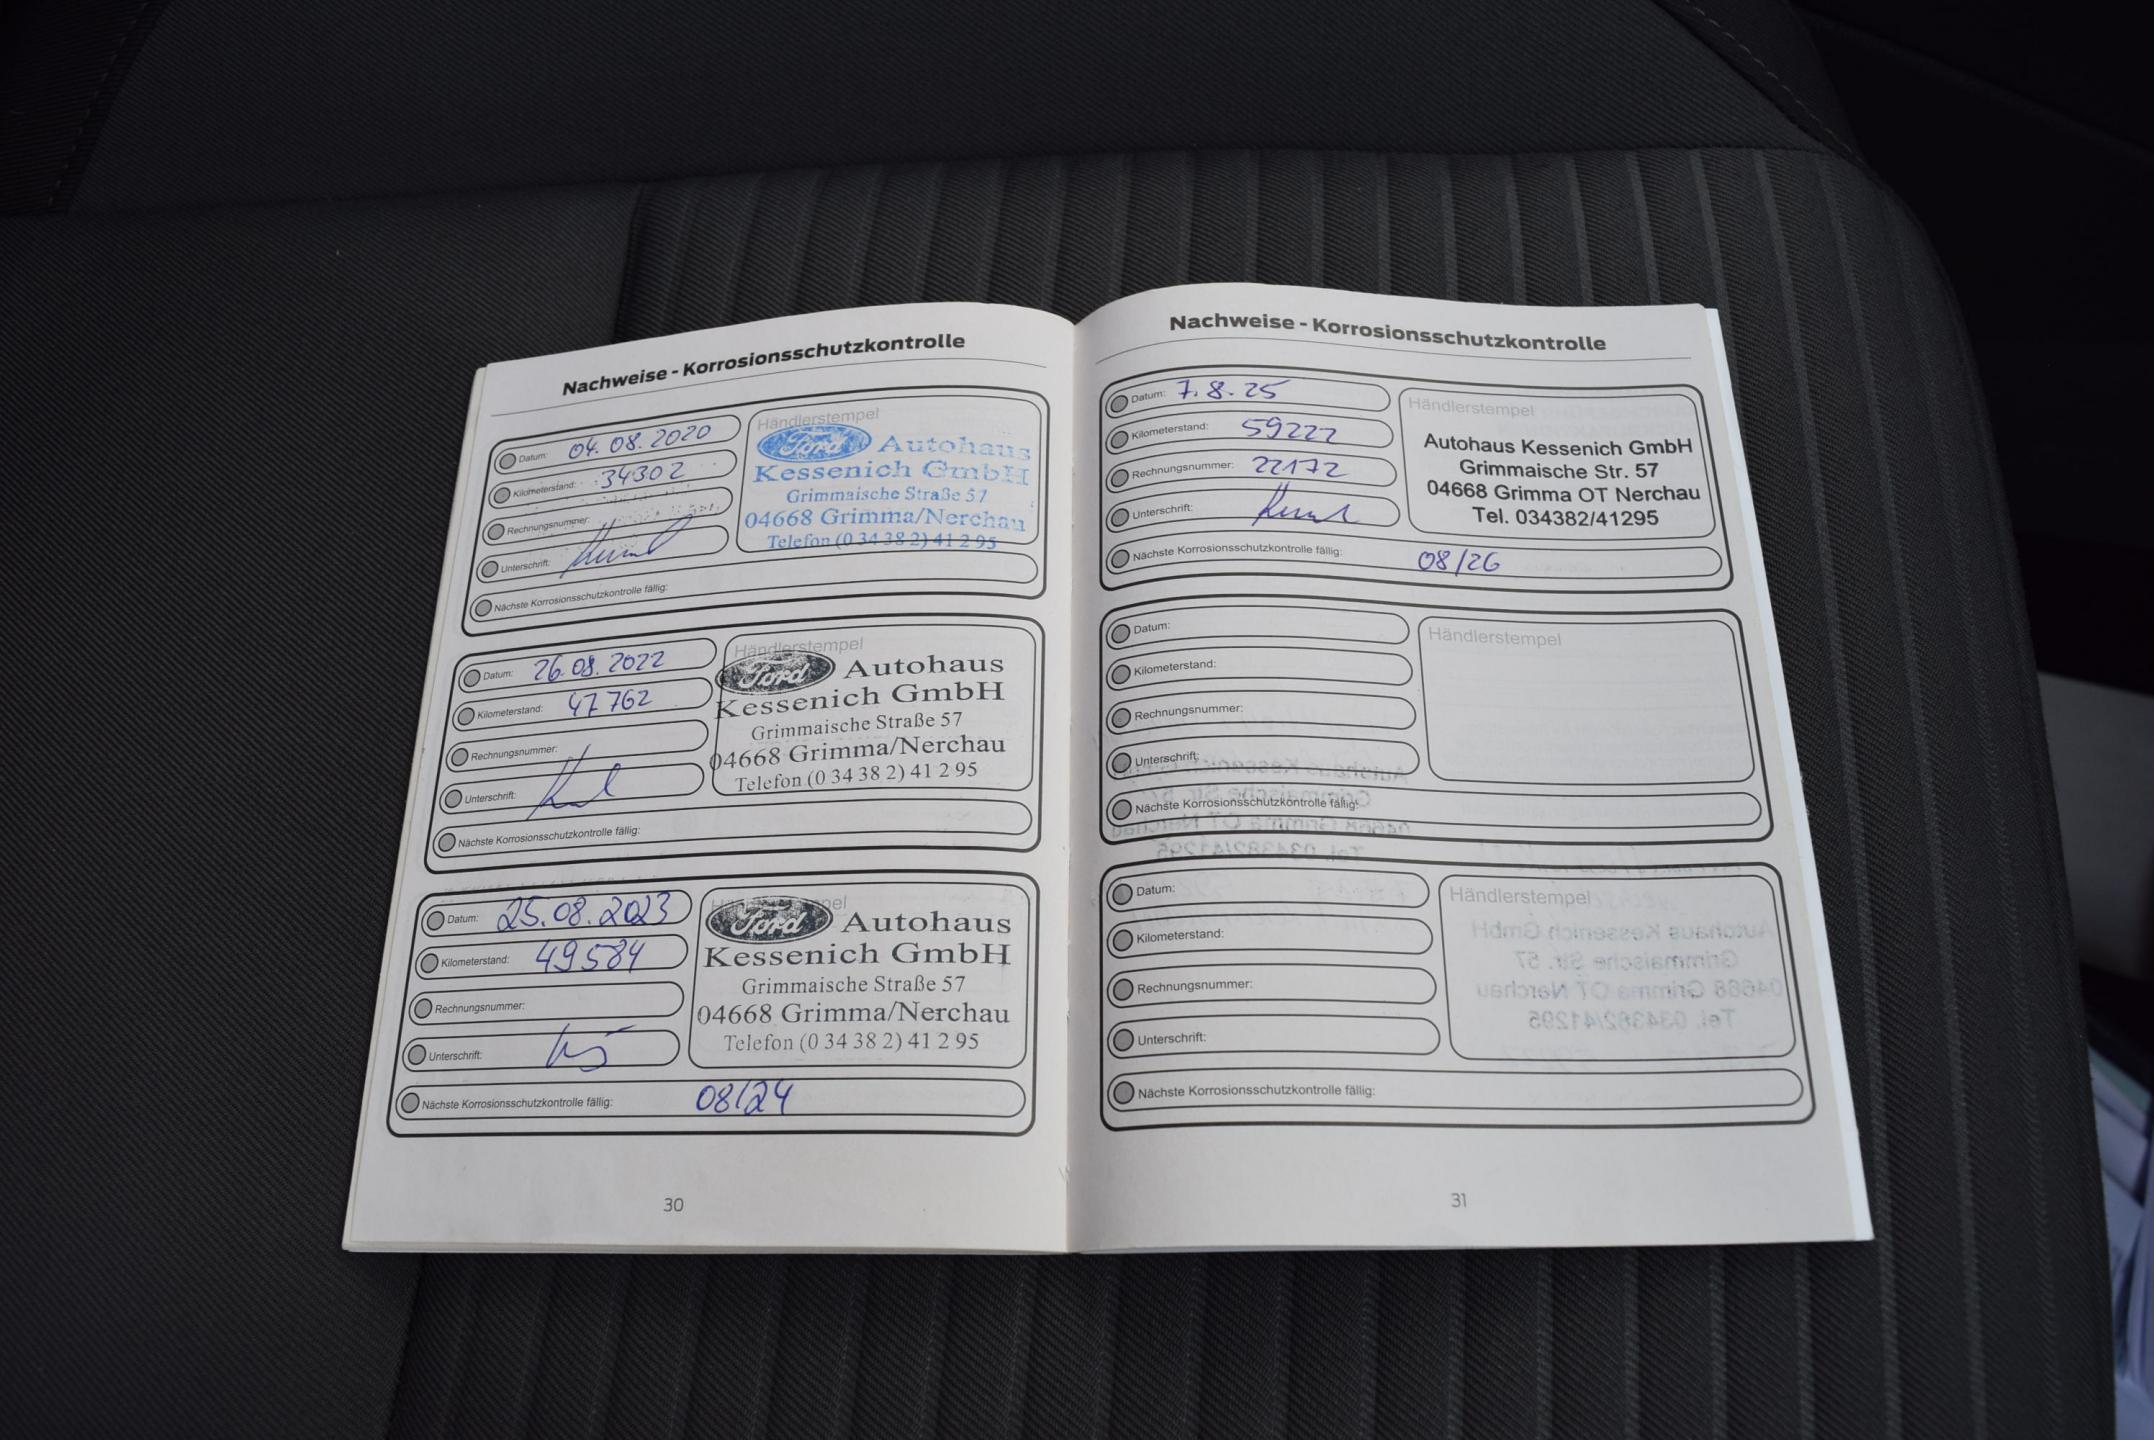 Nachweise - Korrosionsschutzkontrolle
Datum: 04.08.2020
Kilometerstand: 34302
Rechnungsnummer:
Unterschrift:
Nächste Korrosionsschutzkontrolle fällig:
Händlerstempel
Ford Autohaus
Kessenich GmbH
Grimmaische Straße 57
04668 Grimma/Nerchau
Telefon (0 34 38 2) 41 2 95
Datum: 26.08.2022
Kilometerstand: 47762
Rechnungsnummer:
Unterschrift:
Nächste Korrosionsschutzkontrolle fällig:
Händlerstempel
Ford Autohaus
Kessenich GmbH
Grimmaische Straße 57
04668 Grimma/Nerchau
Telefon (0 34 38 2) 41 2 95
Datum: 25.08.2023
Kilometerstand: 49584
Rechnungsnummer:
Unterschrift:
Nächste Korrosionsschutzkontrolle fällig: 08/24
Händlerstempel
Ford Autohaus
Kessenich GmbH
Grimmaische Straße 57
04668 Grimma/Nerchau
Telefon (0 34 38 2) 41 2 95
30
Nachweise - Korrosionsschutzkontrolle
Datum: 7.8.25
Kilometerstand: 59222
Rechnungsnummer: 22172
Unterschrift:
Nächste Korrosionsschutzkontrolle fällig: 08/26
Händlerstempel
Autohaus Kessenich GmbH
Grimmaische Str. 57
04668 Grimma OT Nerchau
Tel. 034382/41295
Datum:
Kilometerstand:
Rechnungsnummer:
Unterschrift:
Nächste Korrosionsschutzkontrolle fällig:
Händlerstempel
Datum:
Kilometerstand:
Rechnungsnummer:
Unterschrift:
Nächste Korrosionsschutzkontrolle fällig:
Händlerstempel
31